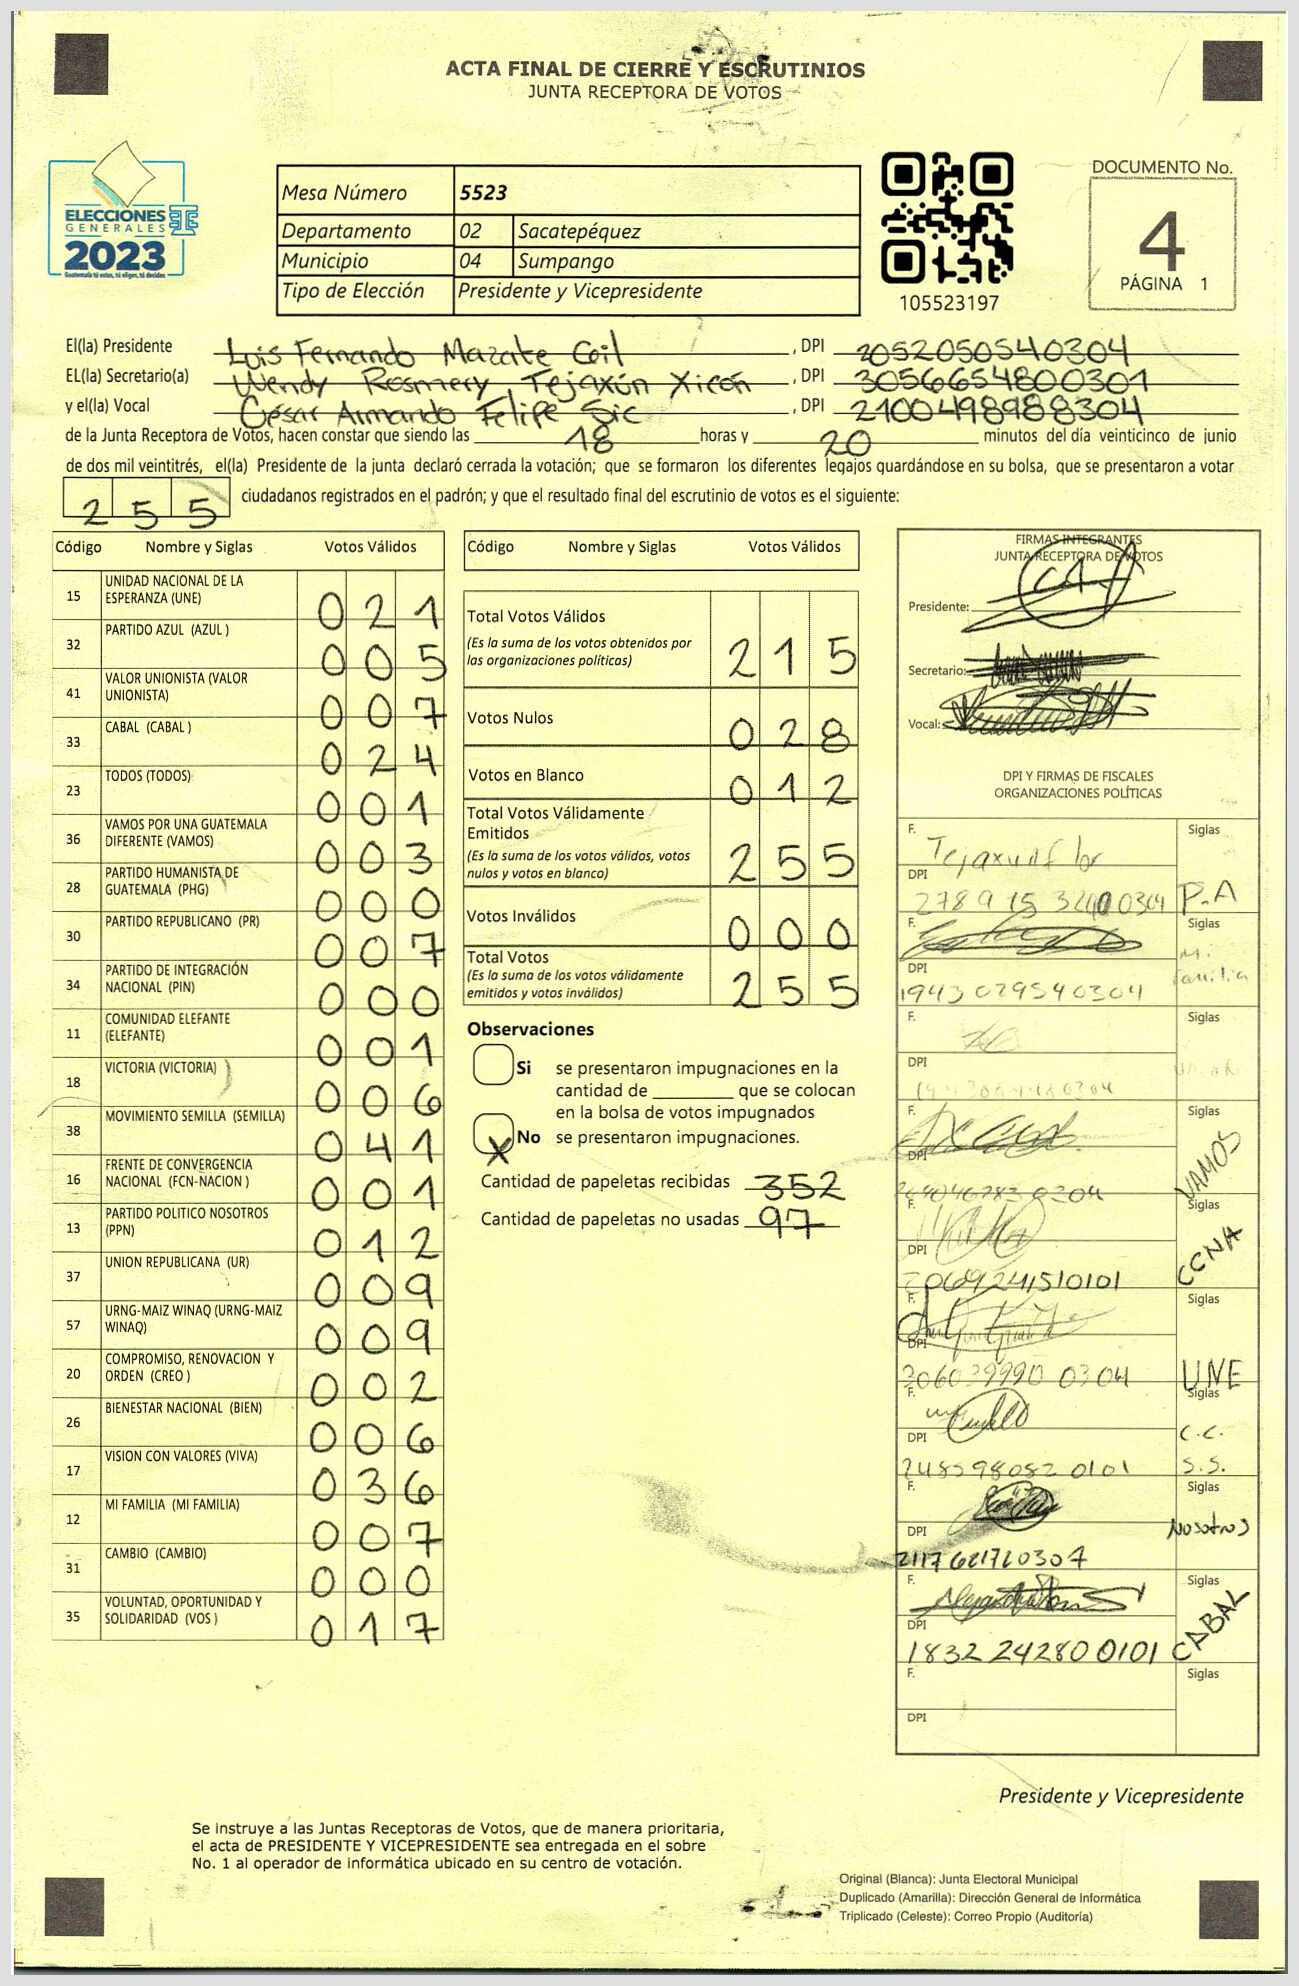 ACTA FINAL DE CIERRE Y ESCRUTINIOS
JUNTA RECEPTORA DE VOTOS
ELECCIONES
GENERALES
2023
Guatemala tú votas, tú eliges, tú decides
Mesa Número 5523
Departamento 02 Sacatepéquez
Municipio 04 Sumpango
Tipo de Elección Presidente y Vicepresidente
105523197
DOCUMENTO No.
4
PÁGINA 1
El(la) Presidente Luis Fernando Mazate Coil, DPI 2052050540304
EL(la) Secretario(a) Wendy Rosmery Tejaxún Xicón, DPI 3056654800301
y el(la) Vocal César Armando Felipe Sic, DPI 2100498988304
de la Junta Receptora de Votos, hacen constar que siendo las 18 horas y 20 minutos del día veinticinco de junio
de dos mil veintitrés, el(la) Presidente de la junta declaró cerrada la votación; que se formaron los diferentes legajos guardándose en su bolsa, que se presentaron a votar
255 ciudadanos registrados en el padrón; y que el resultado final del escrutinio de votos es el siguiente:
Código Nombre y Siglas Votos Válidos
15 UNIDAD NACIONAL DE LA ESPERANZA (UNE) 021
32 PARTIDO AZUL (AZUL ) 005
41 VALOR UNIONISTA (VALOR UNIONISTA) 007
33 CABAL (CABAL ) 024
23 TODOS (TODOS) 001
36 VAMOS POR UNA GUATEMALA DIFERENTE (VAMOS) 003
28 PARTIDO HUMANISTA DE GUATEMALA (PHG) 000
30 PARTIDO REPUBLICANO (PR) 007
34 PARTIDO DE INTEGRACIÓN NACIONAL (PIN) 000
11 COMUNIDAD ELEFANTE (ELEFANTE) 001
18 VICTORIA (VICTORIA) 006
38 MOVIMIENTO SEMILLA (SEMILLA) 041
16 FRENTE DE CONVERGENCIA NACIONAL (FCN-NACION ) 001
13 PARTIDO POLITICO NOSOTROS (PPN) 012
37 UNION REPUBLICANA (UR) 009
57 URNG-MAIZ WINAQ (URNG-MAIZ WINAQ) 009
20 COMPROMISO, RENOVACION Y ORDEN (CREO ) 002
26 BIENESTAR NACIONAL (BIEN) 006
17 VISION CON VALORES (VIVA) 036
12 MI FAMILIA (MI FAMILIA) 007
31 CAMBIO (CAMBIO) 000
35 VOLUNTAD, OPORTUNIDAD Y SOLIDARIDAD (VOS ) 017
Código Nombre y Siglas Votos Válidos
Total Votos Válidos 215
(Es la suma de los votos obtenidos por
las organizaciones políticas)
Votos Nulos 028
Votos en Blanco 012
Total Votos Válidamente
Emitidos 255
(Es la suma de los votos válidos, votos
nulos y votos en blanco)
Votos Inválidos 000
Total Votos 255
(Es la suma de los votos válidamente
emitidos y votos inválidos)
Observaciones
Si se presentaron impugnaciones en la
cantidad de ________ que se colocan
en la bolsa de votos impugnados
X No se presentaron impugnaciones.
Cantidad de papeletas recibidas 352
Cantidad de papeletas no usadas 97
FIRMAS INTEGRANTES
JUNTA RECEPTORA DE VOTOS
Presidente:
Secretario:
Vocal:
DPI Y FIRMAS DE FISCALES
ORGANIZACIONES POLÍTICAS
F. Siglas
DPI P.A
F. Siglas
DPI Mi familia
1943029540304
F. Siglas
DPI
F. Siglas
DPI VAMOS
F. Siglas
DPI CCNA
F. Siglas
DPI UNE
F. Siglas
DPI C.C.
S.S.
F. Siglas
DPI Nosotros
F. Siglas
DPI CABAL
1832 24280 0101
F. Siglas
DPI
Presidente y Vicepresidente
Se instruye a las Juntas Receptoras de Votos, que de manera prioritaria,
el acta de PRESIDENTE Y VICEPRESIDENTE sea entregada en el sobre
No. 1 al operador de informática ubicado en su centro de votación.
Original (Blanca): Junta Electoral Municipal
Duplicado (Amarilla): Dirección General de Informática
Triplicado (Celeste): Correo Propio (Auditoría)